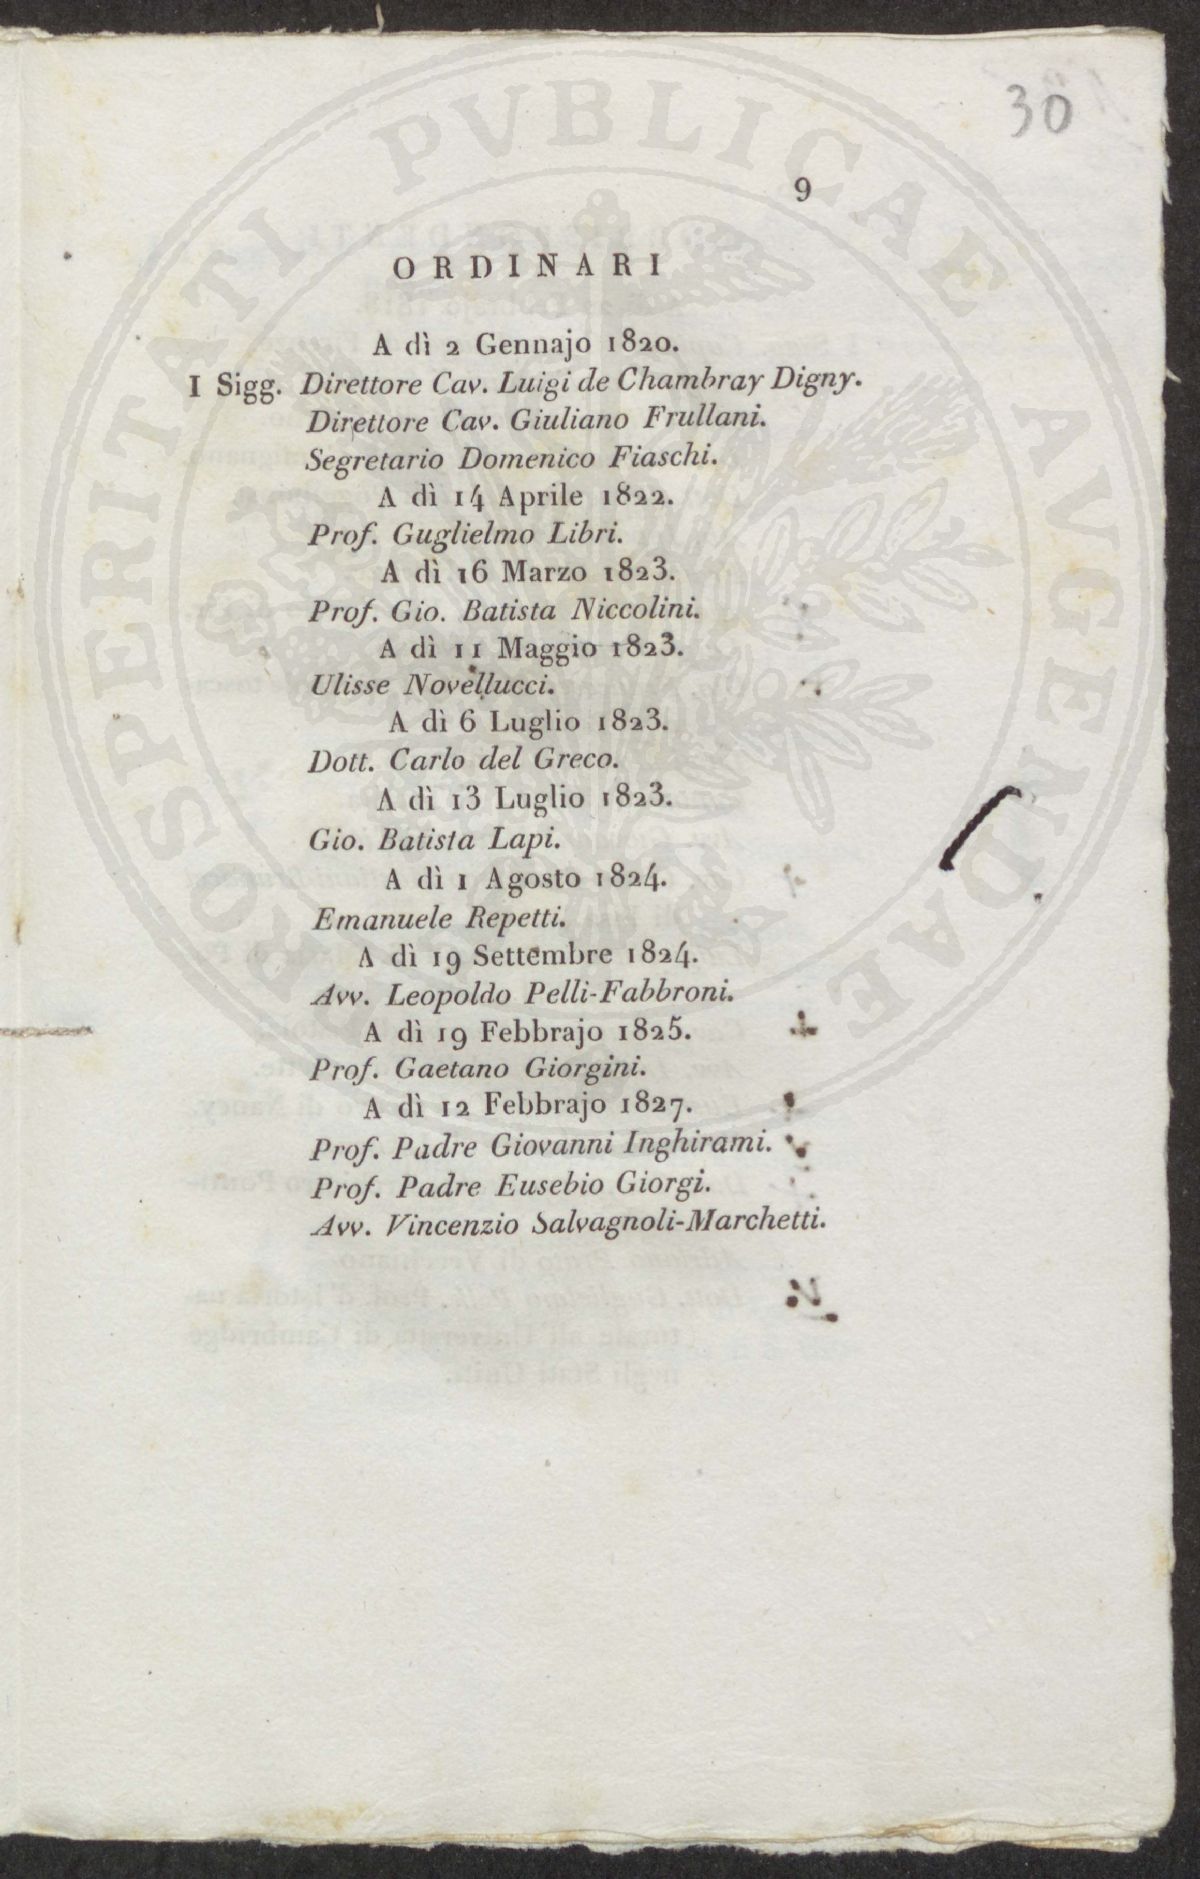 30
9
ORDINARI
A dì 2 Gennajo 1820.
I Sigg. Direttore Cav. Luigi de Chambray Digny.
Direttore Cav. Giuliano Frullani.
Segretario Domenico Fiaschi.
A dì 14 Aprile 1822.
Prof. Guglielmo Libri.
A dì 16 Marzo 1823.
Prof. Gio. Batista Niccolini.
A dì 11 Maggio 1823.
Ulisse Novellucci.
A dì 6 Luglio 1823.
Dott. Carlo del Greco.
A dì 13 Luglio 1823.
Gio. Batista Lapi.
A dì 1 Agosto 1824.
Emanuele Repetti.
A dì 19 Settembre 1824.
Avv. Leopoldo Pelli-Fabbroni.
A dì 19 Febbrajo 1825.
Prof. Gaetano Giorgini.
A dì 12 Febbrajo 1827.
Prof. Padre Giovanni Inghirami.
Prof. Padre Eusebio Giorgi.
Avv. Vincenzio Salvagnoli-Marchetti.
PROSPERITATI PVBLICAE AVGENDAE